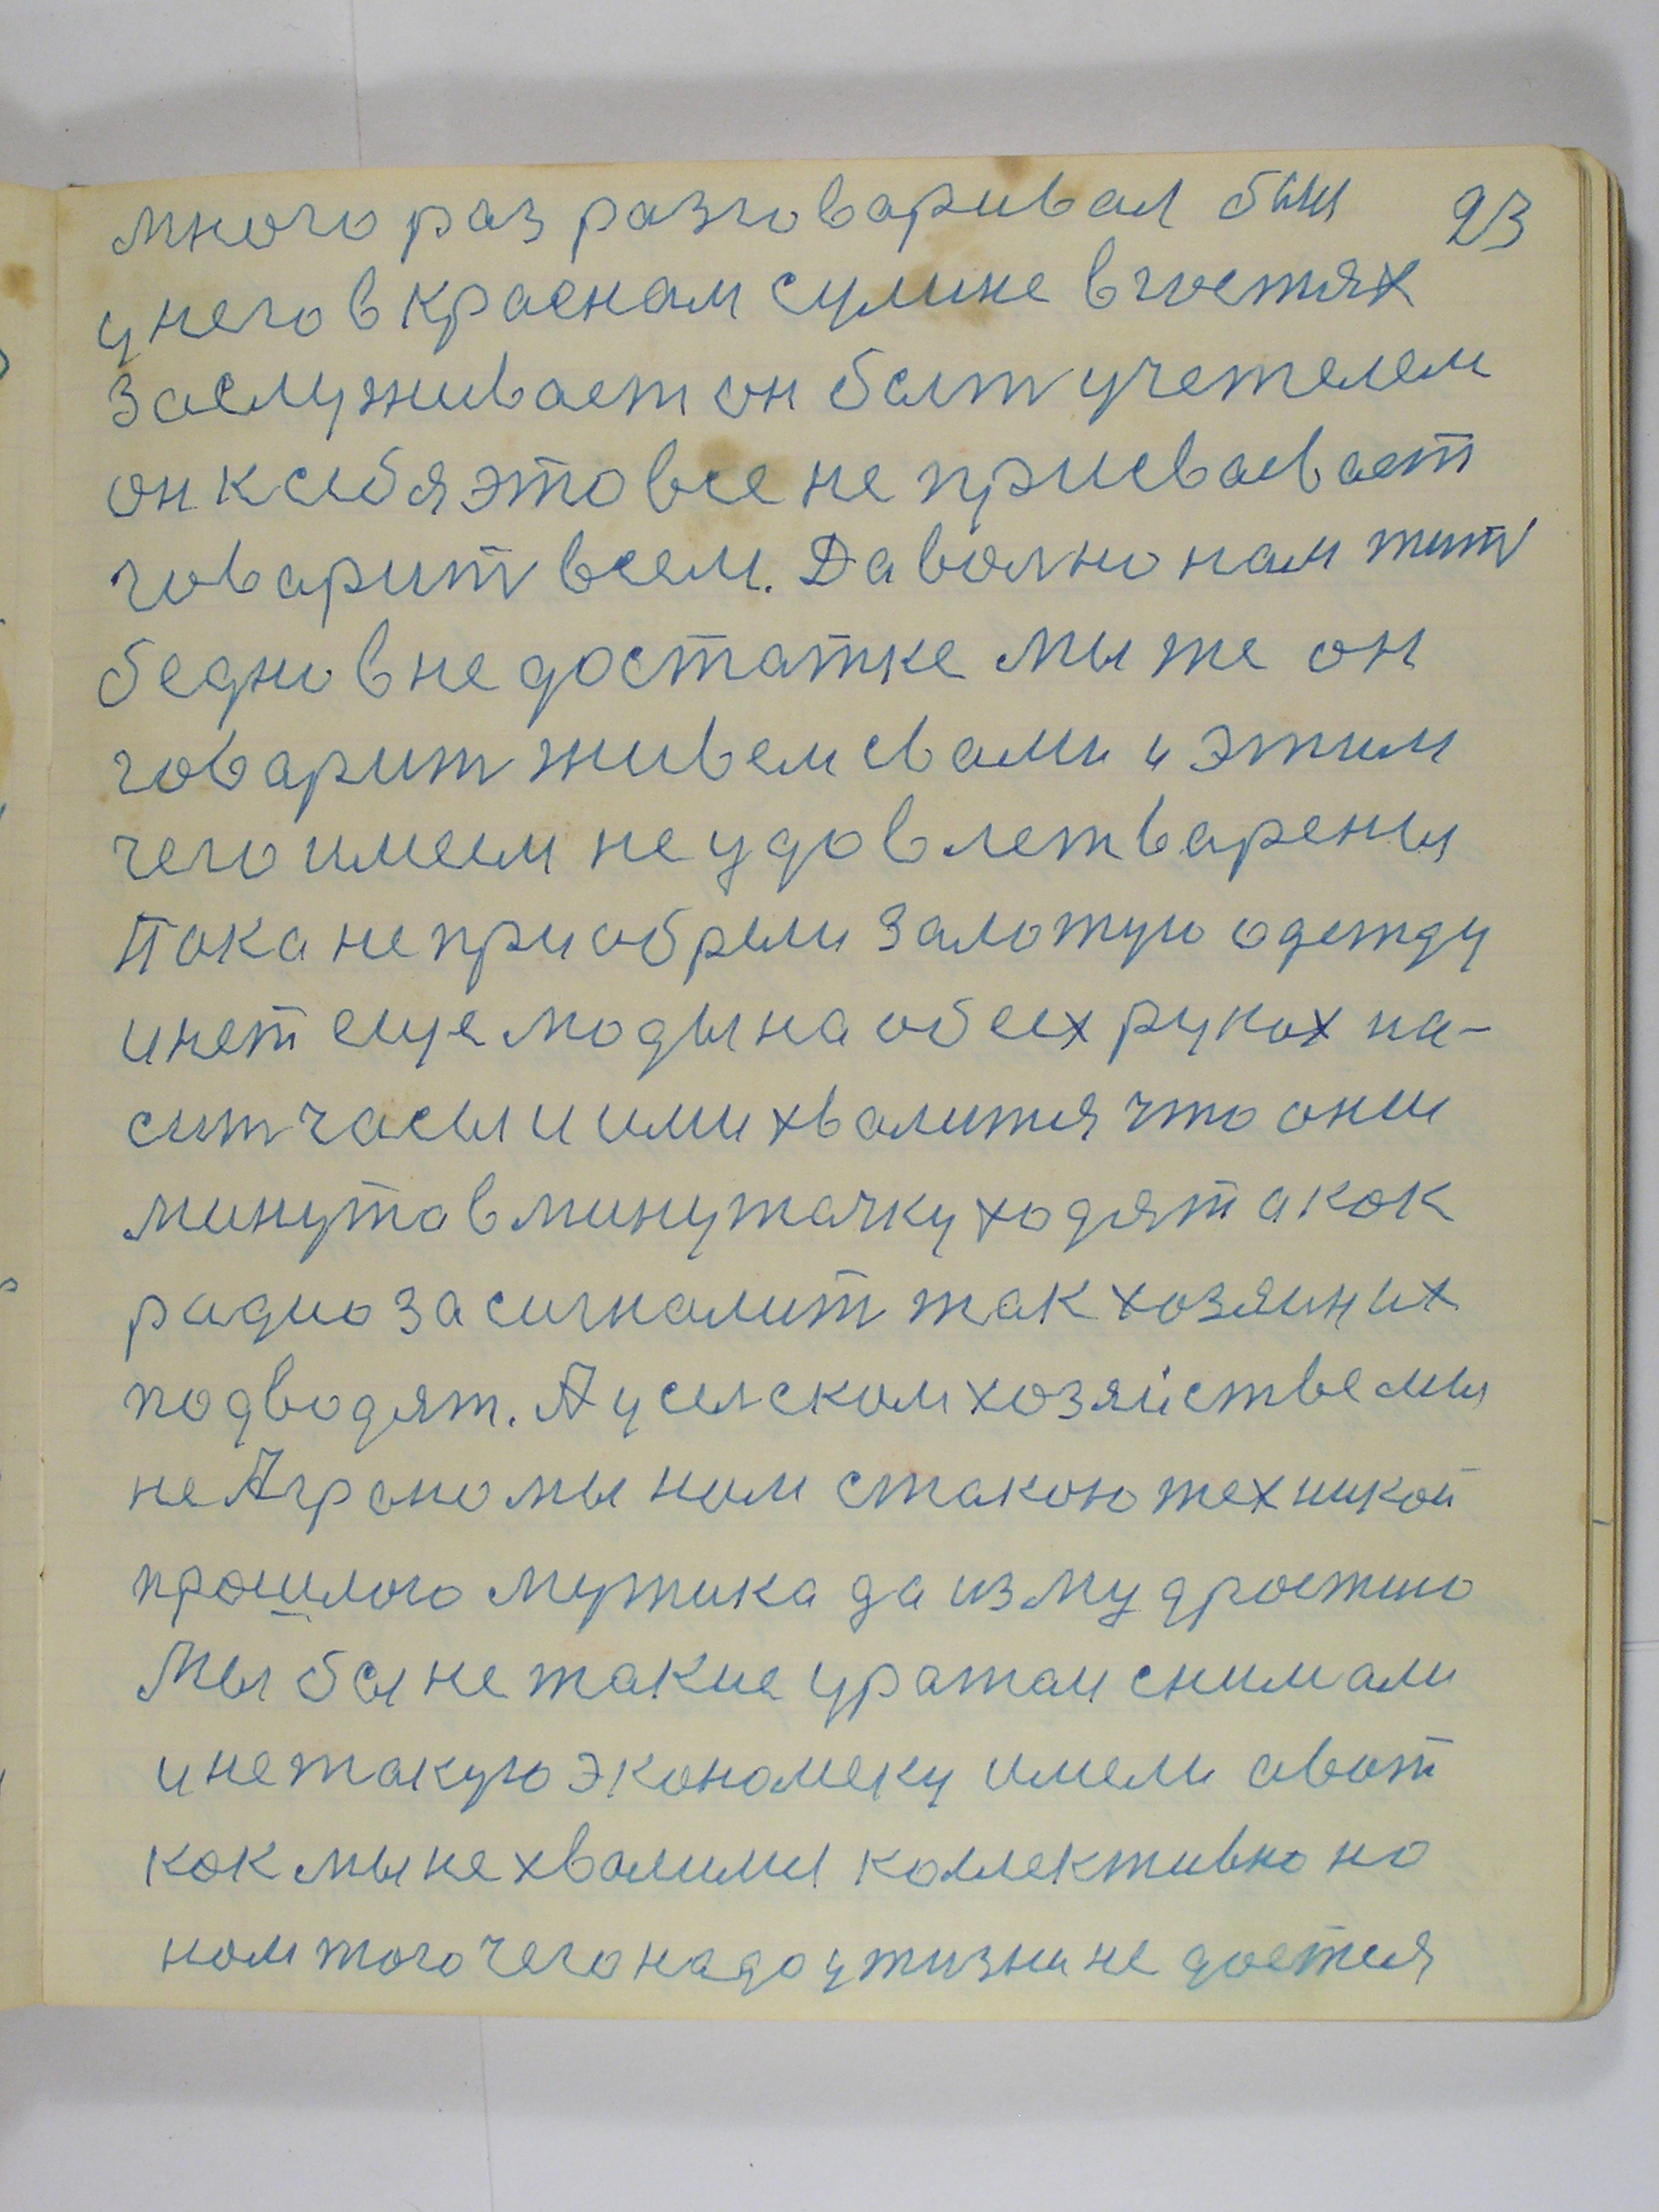 много раз разговаривал был 23
у него в красном сулине в гостях
заслуживает он быть учетелем
он к себя это все не присваевает
говарить всем. Даволно нам жить
бедно в недостатке мы же он
говарить живем свами и этим
чего имеем не удовлетварены
Пока не приобрели залотую одежду
и нет еще моды на обеех руках на-
сить часы и ими хвалится что они
минута в минутачку ходят а как
радио засигналить так хозяин их
подводят. А у сельском хозяйстве мы
не Аграномы нам с такою техникой
прошлого мужика да из мудростию
Мы бы не такие уражаи снимали
и не такую экономеку имели а вот
как мы не хвалимы коллективно но
нам того чего надо у жизни не дается